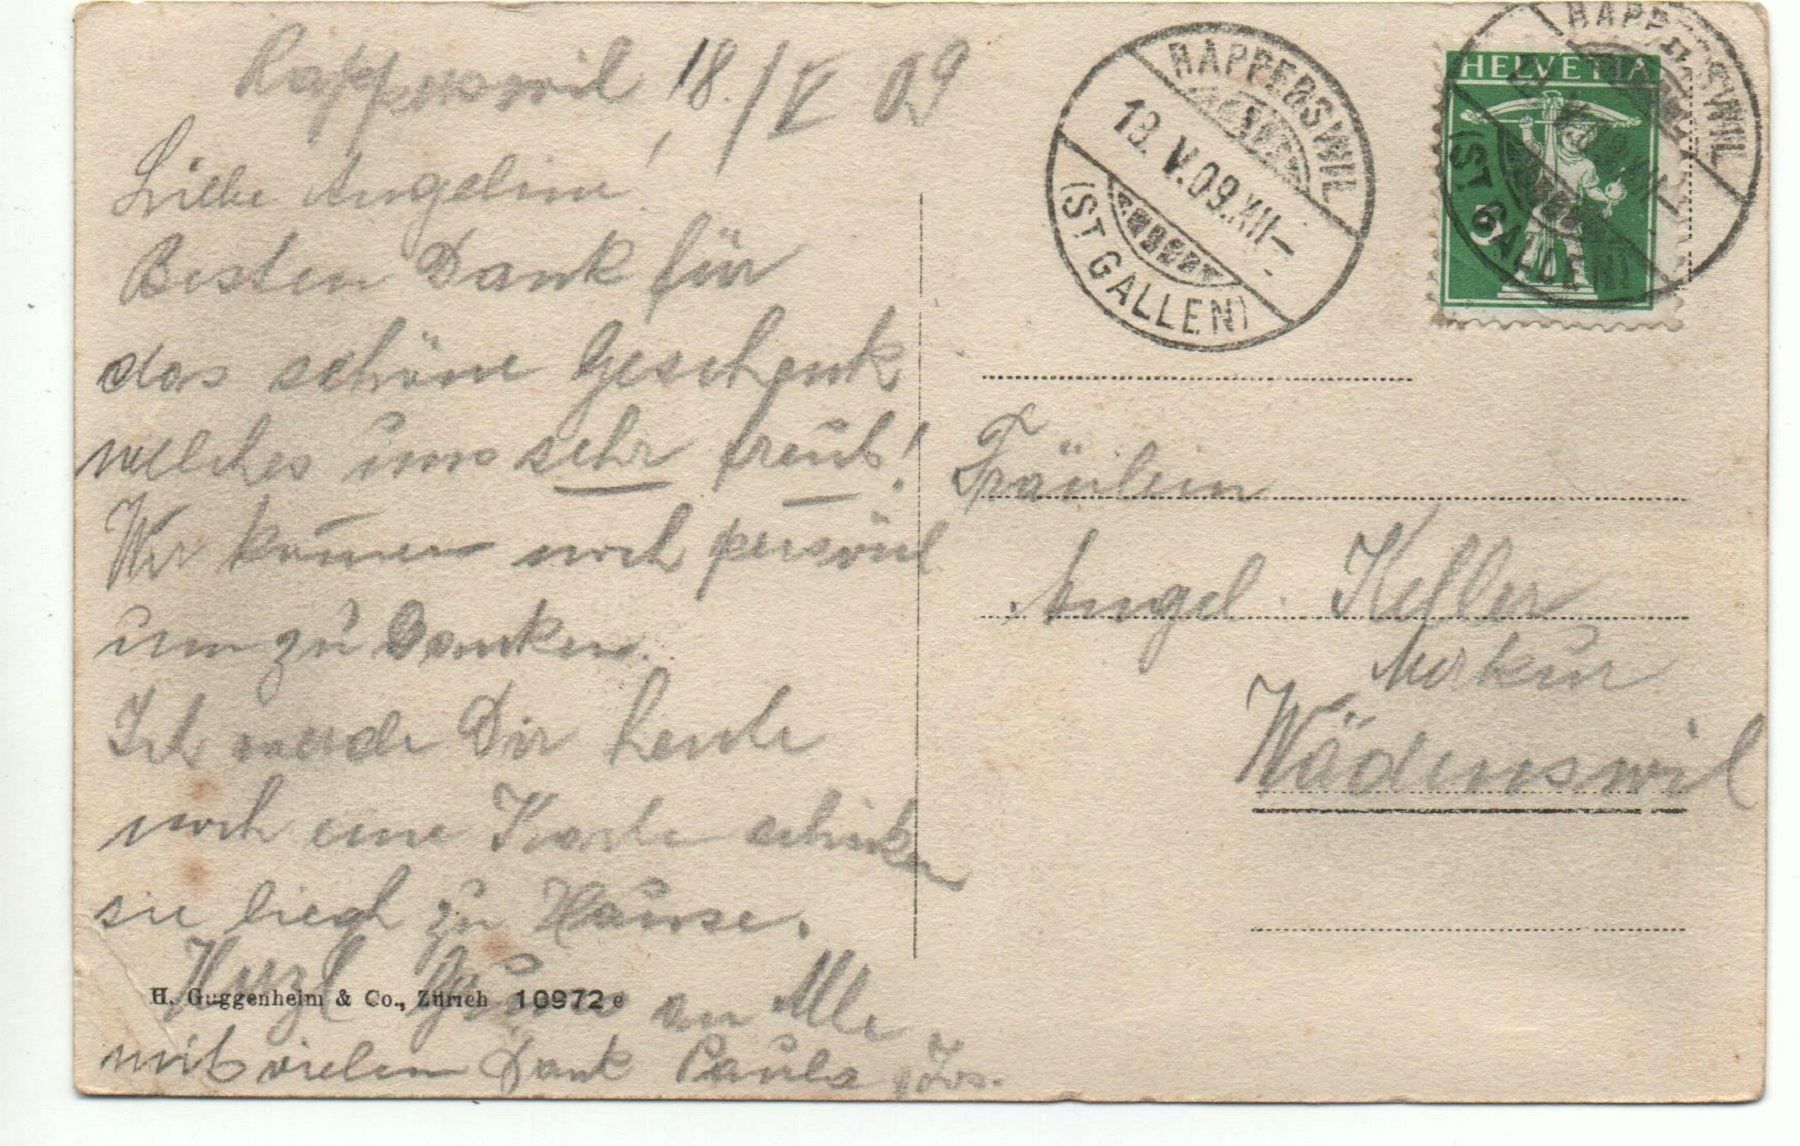 Rapperswil, 18./V 09
Liebe Angeline!
Besten Dank für
das schöne Geschenk
welches uns sehr freut!
Wir kom̄en noch persönl
um zu Danken.
Ich werde Dir heute
noch eine Karte schicken
sie liegt zu Hause.
Herzl Grüsse an Alle
mit vielem Dank Paula
H. Guggenheim & Co., Zürich 10972 e
RAPPERSWIL
18. V. 09. XII–
(ST GALLEN)
RAPPERSWIL
(ST GALLEN)
HELVETIA
5
Fräulein
Angel. Keller
Merkur
Wädenswil